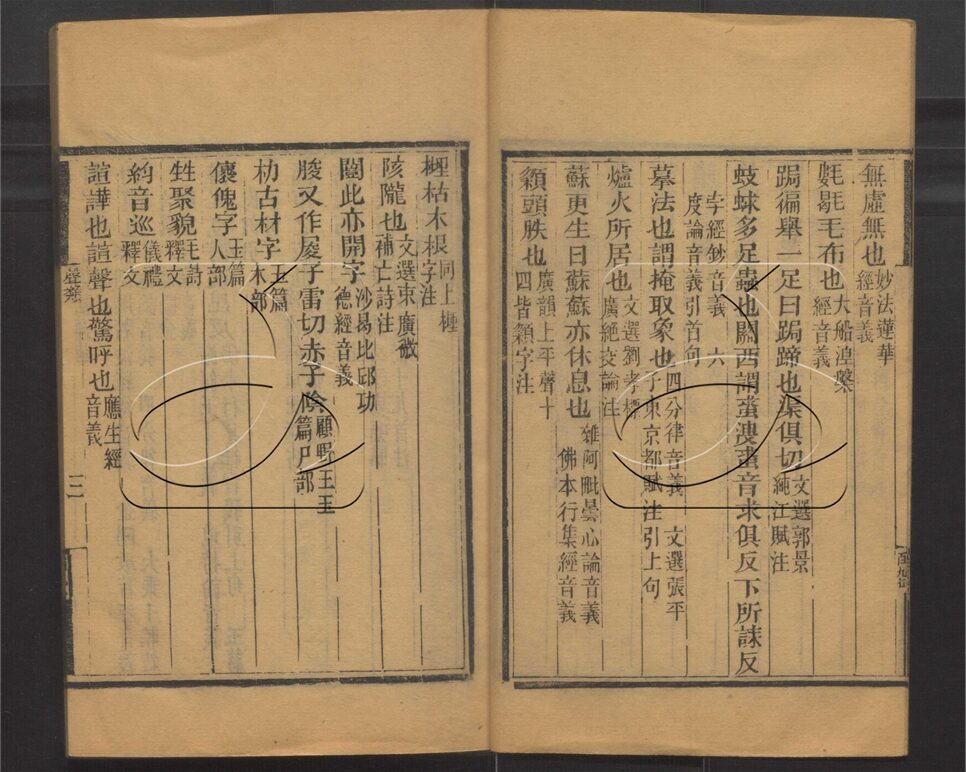 無虛無也妙法蓮華經音義
氀毼毛布也大船涅槃經音義
跼偏舉一足曰跼蹄也渠俱切文選郭景純江賦注
蚑蛷多足蟲也關西謂蛷溲蛷音求俱反下所誄反
字經鈔音義 六度論音義引首句
摹法也謂掩取象也四分律音義 文選張平子東京都賦注引上句
爐火所居也文選劉孝標廣絕交論注
蘇更生曰蘇蘇亦休息也雜阿毗曇心論音義 佛本行集經音義
顙頭胅也廣韻上平聲十四皆顙字注
榸枯木根字同上榸注
陔隴也文選束廣微補亡詩注
闓此亦開字沙曷比邱功德經音義
朘又作㞘子雷切赤子陰顧野王玉篇尸部
朸古材字玉篇木部
儴傀字玉篇人部
甡聚貌毛詩釋文
紃音巡儀禮釋文
諠譁也諠聲也驚呼也應生經音義
聲類
三